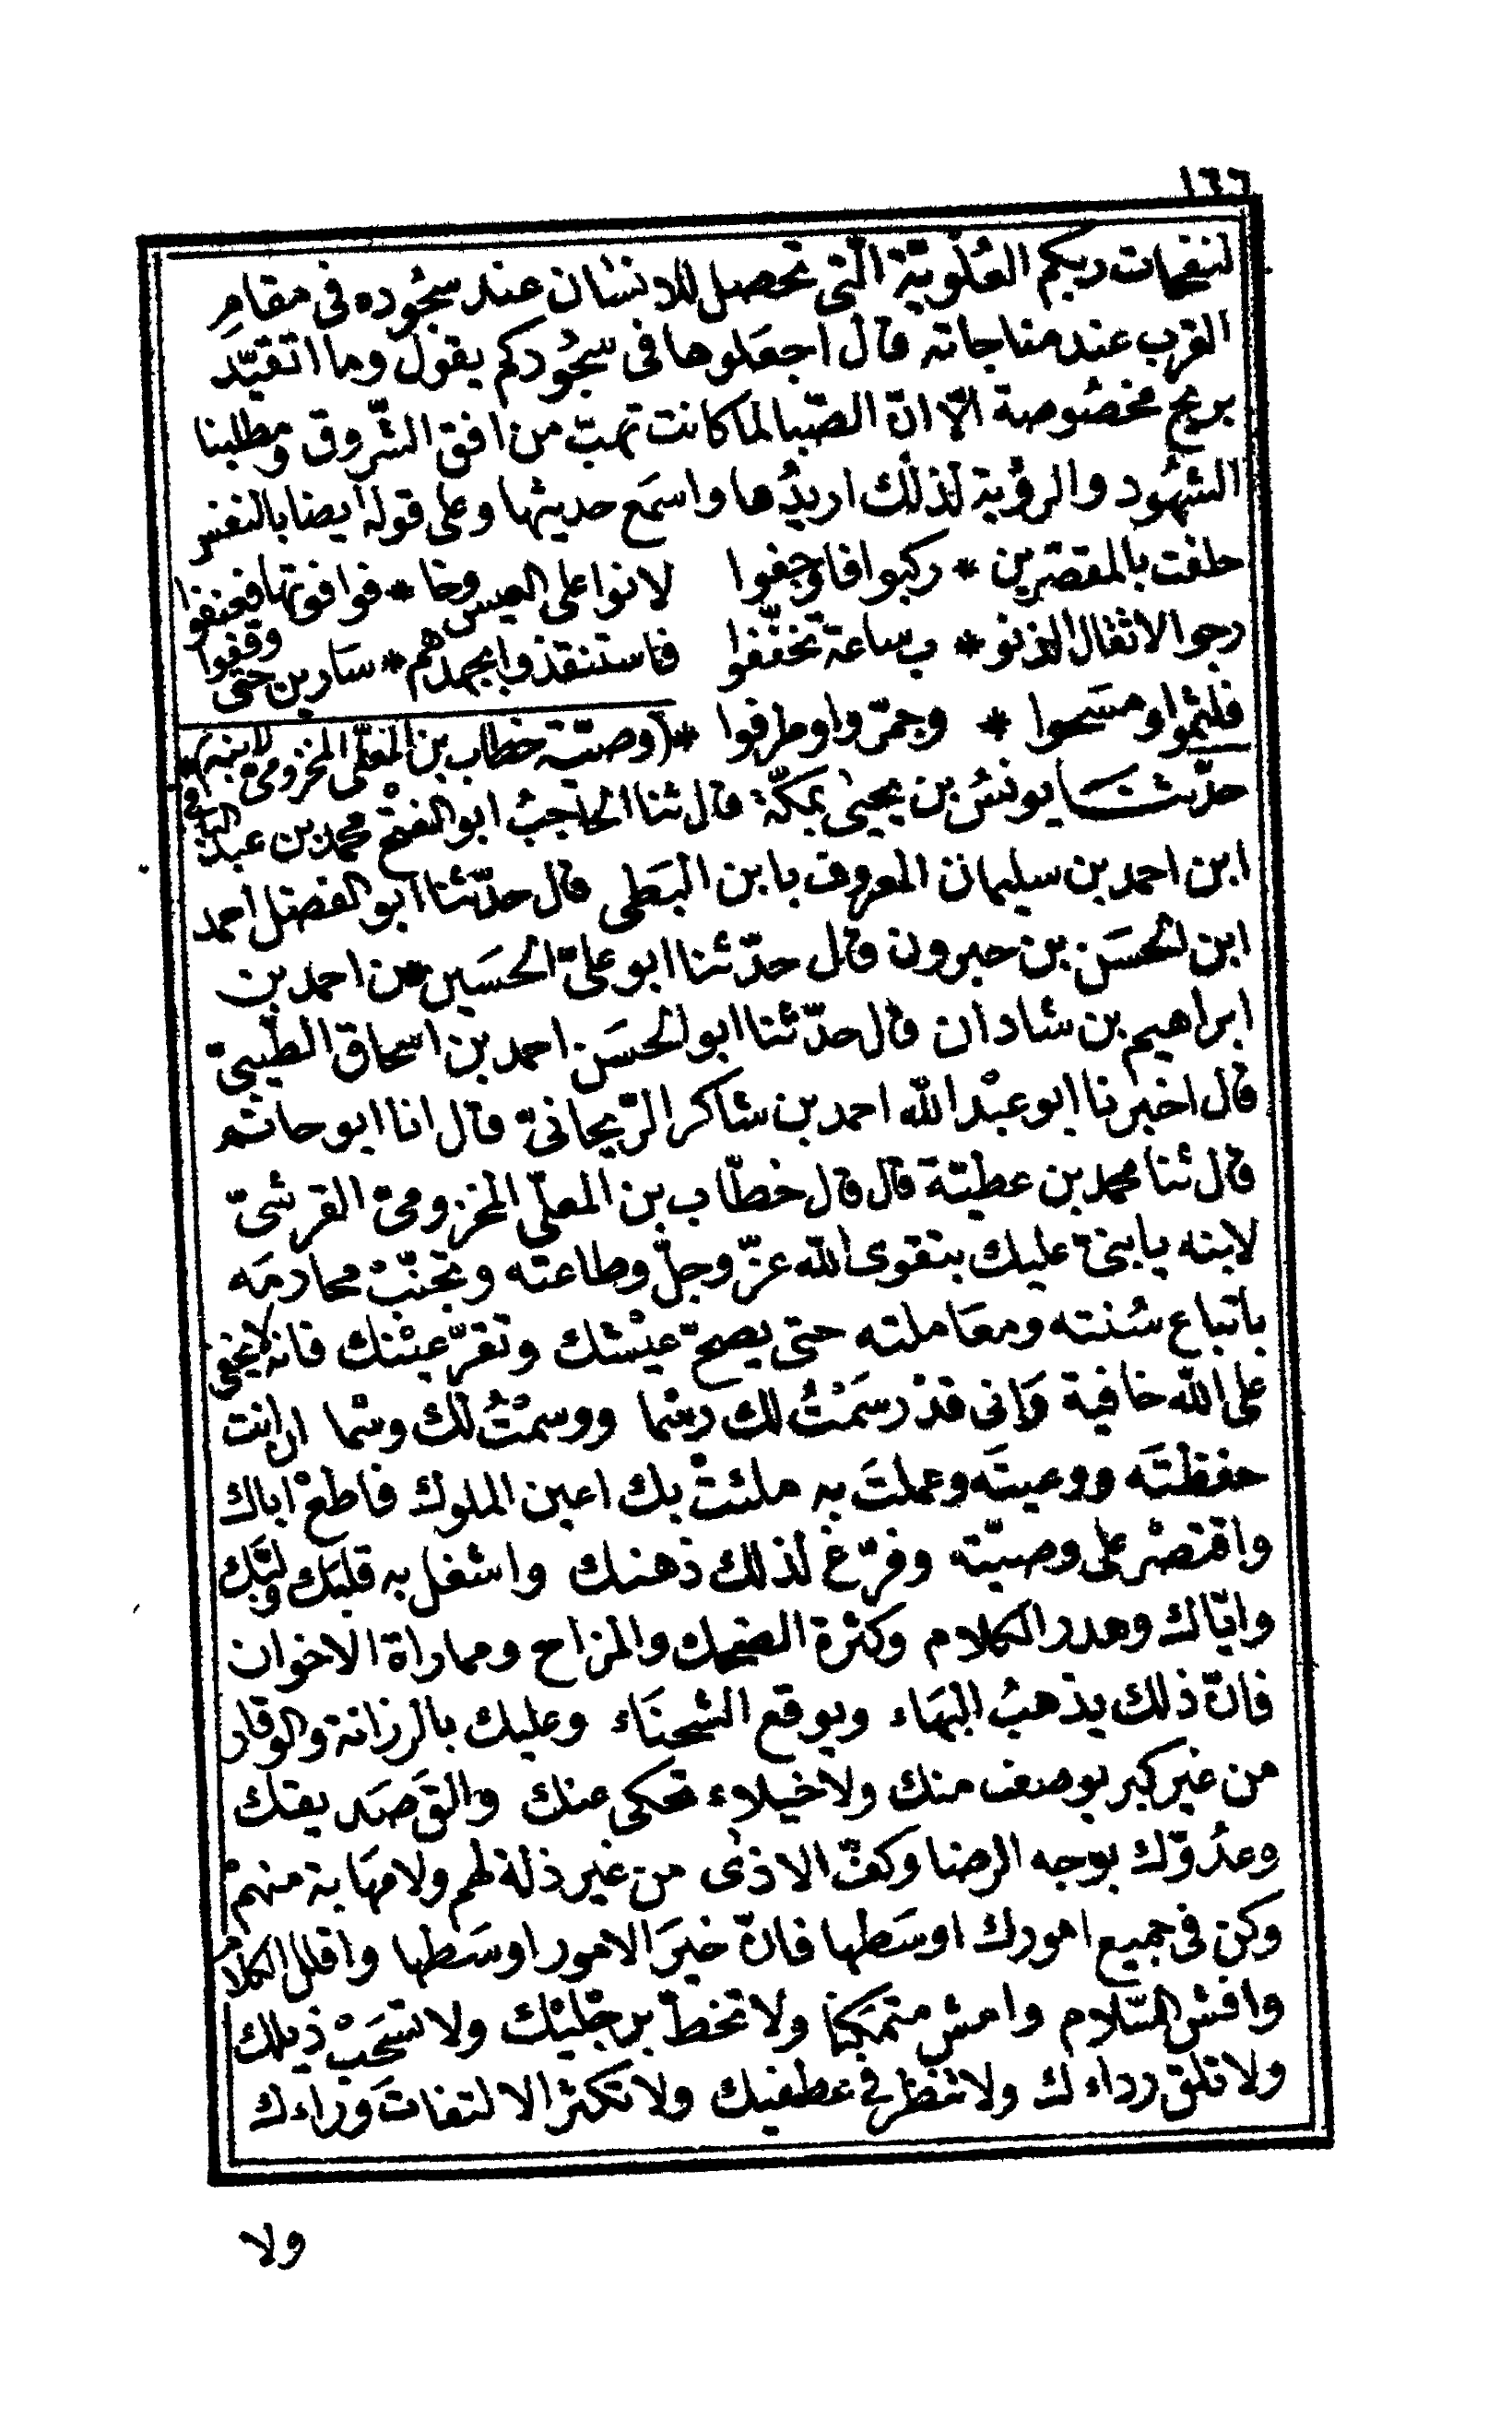 ١٦٦
لنفحات ربكم العُلْويّة الّتى تحصل للانسان عند سجُوده فى مقامِ
القرب عند مناجاته قال اجعَلوها فى سجُودكم يقول وما اتقيّد
بريح مخصُوصة الّا انّ الصّبا لما كانت تهبّ من افق الشّروق ومطلبنا
الشهُود والرؤية لذلك اريدُها واسمَع حديثها وعلى قوله ايضا بالنفس
حلفت بالمقصرين * ركبوا فاوجفوا لانوا على العيس وخا * فوا فوتها فعنفوا
رجوا لاثقال الذنو * ب ساعة تخفّفوا فاستنقذوا بجهدهم * سَارين حتى وقفوا
فلثموا ومسَحوا * وجمّروا وطرفوا * (وصيّة خطاب بن المعلّى المخزومىّ لابنه) *
حدّثنا يونسُ بن يحيىٰ بمكّة قال ثنا الحاجبُ ابو الفتح محمد بن عبد الباقى
ابن احمد بن سليمان المعروف بابن البَطى قال حدّثنا ابو الفضل احمد
ابن الحسَن بن حيرون قال حدّثنا ابو علىّ الحسَين بن احمد بن
ابراهيم بن شادان قال حدّثنا ابو الحسَن احمد بن اسحاق الطّيبىّ
قال اخبرنا ابو عبْد الله احمد بن شاكر الرّيحانىّ قال انا ابو حاتم
قال ثنا محمد بن عطيّة قال قال خطّاب بن المعلّى المخزومىّ القرشىّ
لابنه يا بنىّ عليك بتقوى الله عزّ وجلّ وطاعته وتجنّبْ محارمَه
باتباع سُنته ومعَاملته حتى يصحّ عيْشك وتقرّ عيْنك فانه لا يخفى
على الله خافية وَانى قدْ رسَمْتُ لك رسْما ووسمْتُ لك وسْما ان انت
حفظتَه ووعيتَه وعملتَ به ملئتْ بك اعين الملوك فاطعْ اباك
واقتصْر على وصيّته وفرّغ لذلك ذهنك واشغل به قلبَك ولبَّك
وايّاك وهدر الكلام وكثرة الضحك والمزاح ومماراة الاخوان
فانّ ذلك يذهبُ البهَاء ويوقع الشحنَاء وعليك بالرزانة والوقار
من غير كبر يوصف منك ولا خيلاء تحكى عنك والقَ صَديقك
وعدُوّك بوجه الرضا وكفّ الاذى من غير ذلة لهم ولا مهَابة منهمْ
وكن فى جميع امورك اوسَطها فانّ خيَر الامور اوسَطها واقلل الكلام
وافش السّلام وامش متمكنا ولا تخطّ برجْليْك ولا تسحَبْ ذيلك
ولا تلق رداءك ولا تنظر فى عطفيك ولا تكثر الالتفاتَ وراءك
ولا